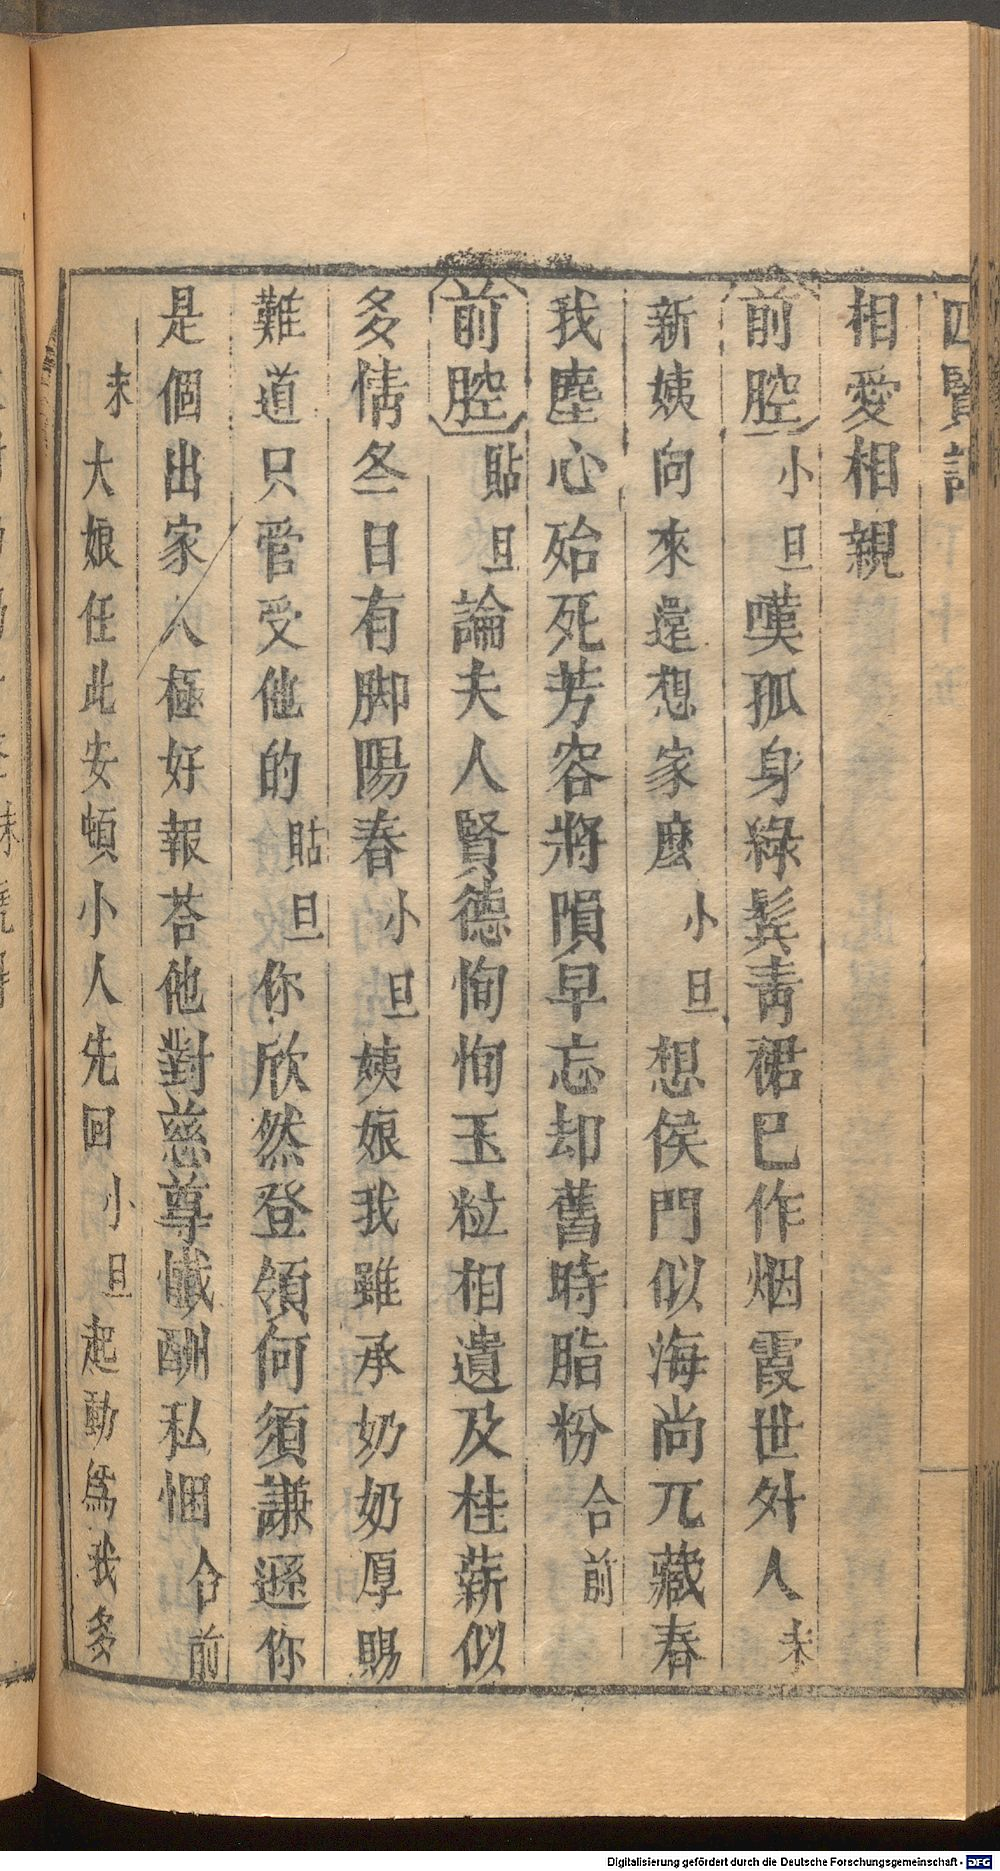 四賢記
相愛相親
前腔小旦嘆孤身綠鬂青裙已作烟霞世外人末
新姨向來還想家麽小旦想侯門似海尚兀藏春
我塵心殆死芳容將隕早忘却舊時脂粉合前
前腔貼旦論夫人賢德恂恂玉粒相遺及桂薪似
多情冬日有脚陽春小旦姨娘我雖承奶奶厚賜
難道只管受他的貼旦你欣然登領何須謙遜你
是個出家人極好報荅他對慈尊懺酬私悃合前
末大娘任此安頓小人先回小旦起動爲我多
Digitalisierung gefördert durch die Deutsche Forschungsgemeinschaft - DFG